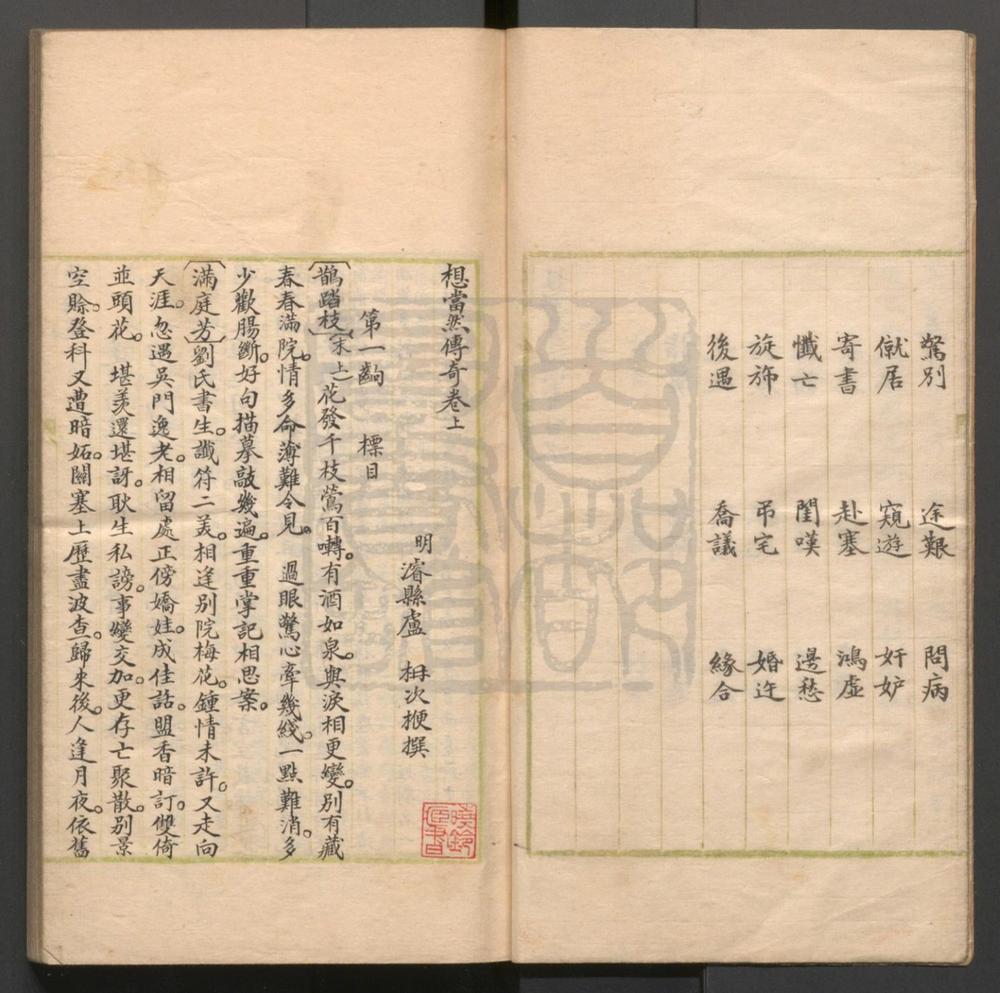 驚別　途艱　問病
僦居　窺遊　奸妒
寄書　赴塞　鴻虛
懺亡　閨嘆　邊愁
旋斾　吊宅　婚迕
後遇　喬議　緣合
想當然傳奇卷上
明　濬縣盧　柟次楩撰
第一齣　標目
〔鵲踏枝〕〔末上〕花發千枝鶯百囀。有酒如泉。與淚相更變。別有藏
春春滿院。情多命薄難令見。　過眼驚心牽幾綫。一點難消。多
少歡腸斷。好句描摹敲幾遍。重重掌記相思案。
〔滿庭芳〕劉氏書生。讖符二美。相逢別院梅花。鍾情未許。又走向
天涯。忽遇吳門逸老。相留處正傍嬌娃。成佳話。盟香暗訂。雙倚
並頭花。　堪羨還堪訝。耿生私謗。事變交加。更存亡聚散。別景
空賒。登科又遭暗妬。關塞上歷盡波查。歸來後。人逢月夜。依舊